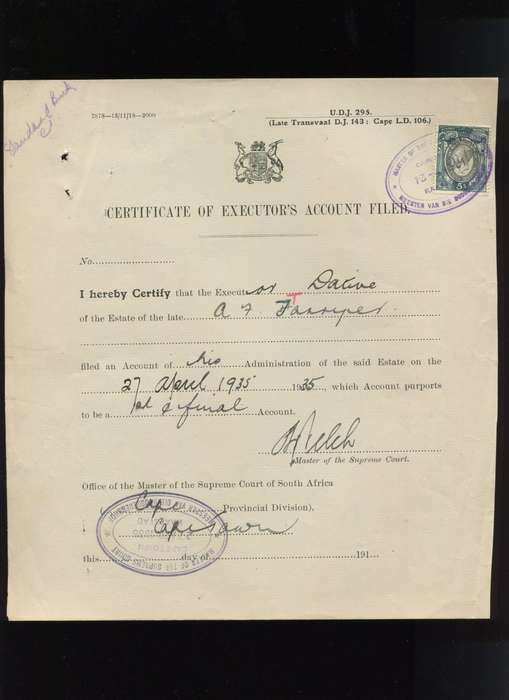 Standard Bank
7878—13/11/18—2000
U.D.J. 295.
(Late Transvaal D.J. 143; Cape L.D. 106.)
CERTIFICATE OF EXECUTOR'S ACCOUNT FILED.
No.
I hereby Certify that the Executor Dative
of the Estate of the late A F
filed an Account of his Administration of the said Estate on the
27 April 1935 1935, which Account purports
to be a 1st & final Account.
Master of the Supreme Court.
Office of the Master of the Supreme Court of South Africa
Cape Provincial Division).
Cape Town
this day of 191